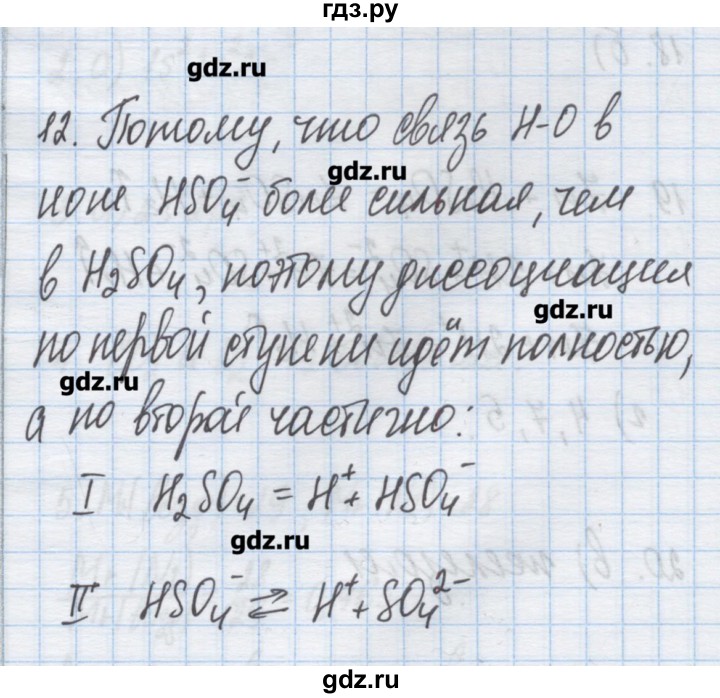 гдз.ру
gdz.ru
12. Потому, что связь H-O в
gdz.ru
ионе HSO₄⁻ более сильная, чем
в H₂SO₄, поэтому диссоциация
gdz.ru
по первой ступени идёт полностью,
gdz.ru
а по второй частично:
I H₂SO₄ = H⁺ + HSO₄⁻
gdz.ru
II HSO₄⁻ ⇄ H⁺ + SO₄²⁻
gdz.ru